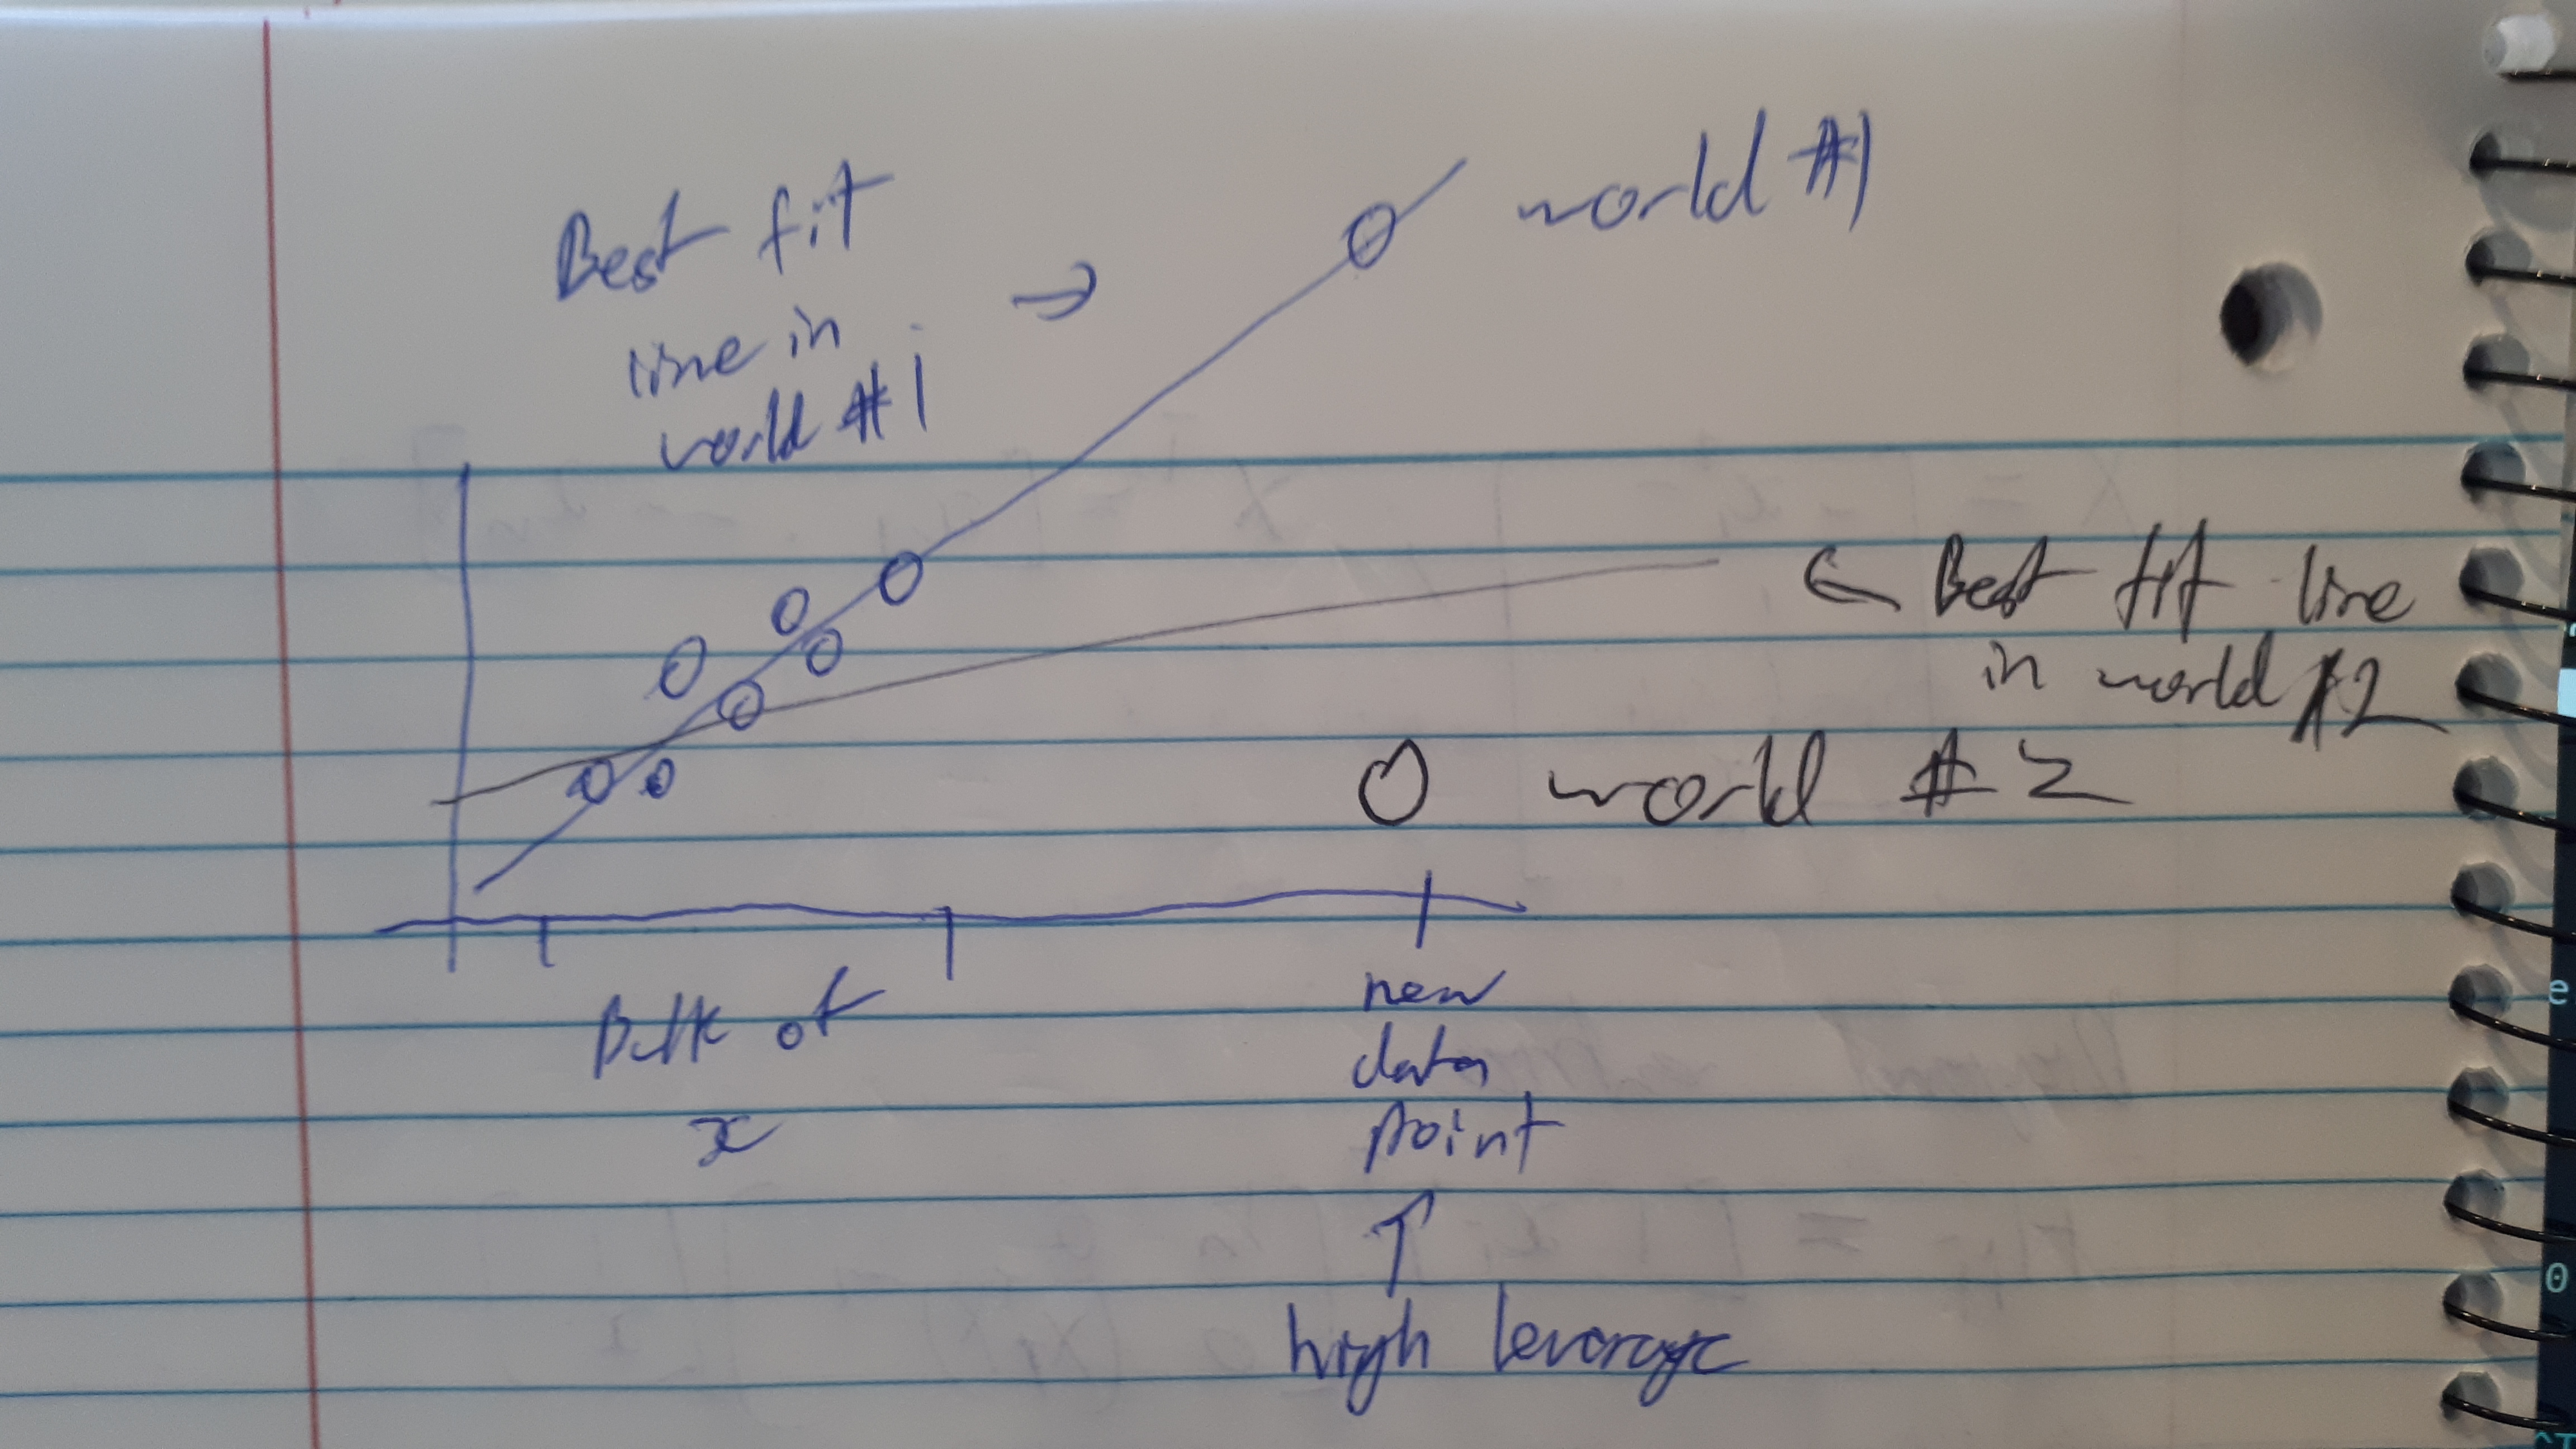 Best fit
line in
world #1
→
world #1
← Best fit line
in world #2
world #2
Bulk of
x
new
data
point
↑
high leverage
e
0